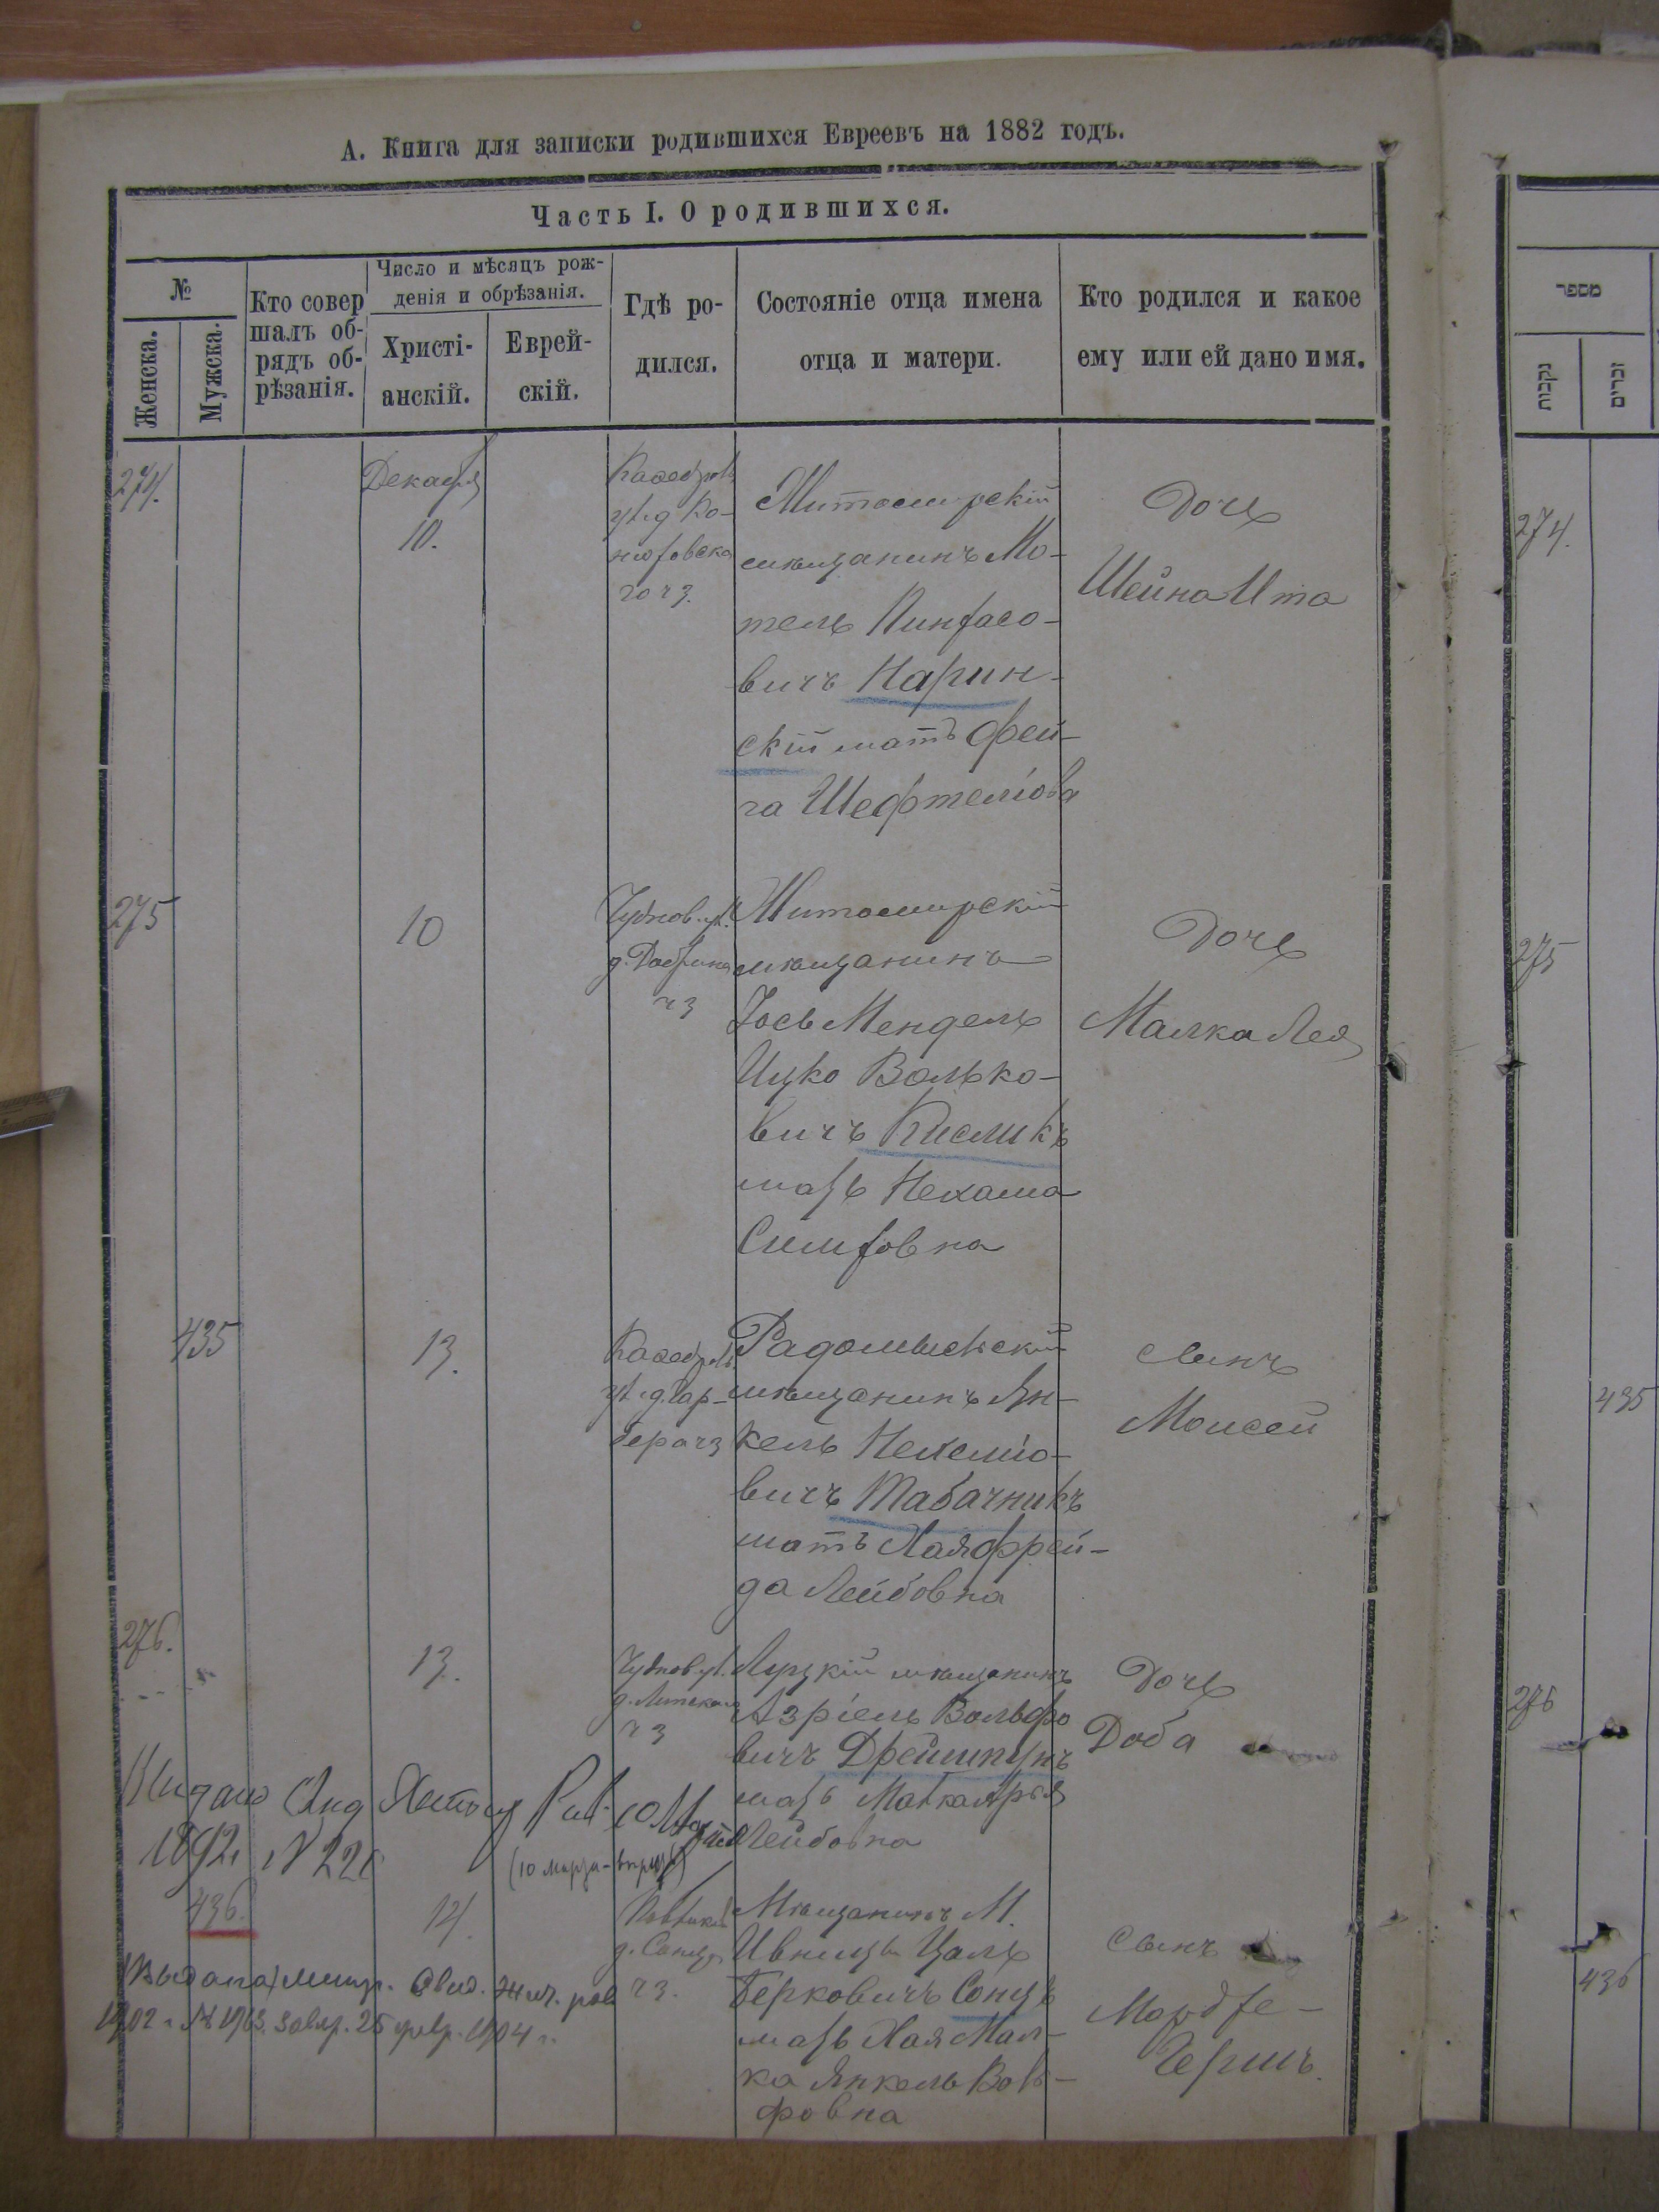 А. Книга для записки родившихся Евреевъ на 1882 годъ.
Часть I. О родившихся.
№
Женска.
Мужска.
Кто совер
шалъ об-
рядъ об-
рѣзанія.
Число и мѣсяцъ рож-
денія и обрѣзанія.
Христі-
анскій.
Еврей-
скій.
Гдѣ ро-
дился.
Состояніе отца имена
отца и матери.
Кто родился и какое
ему или ей дано имя.
274.
Декабря
10.
Житомирскій
мѣщанинъ Мо-
тель Пинхасо-
вичъ Нарин-
скій мать Фей-
га Шефтеліова
Дочь
Шейна Ита
275
10
Чуднов. ул.
чз
Житомирскій
мѣщанинъ
Іось Мендель
Ицко Волько-
вичъ Кисликъ
мать Нехама
Дочь
Малка Лея
435
13.
Радомысльскій
мѣщанинъ Ян-
кель Нехеміо-
вичъ Табачникъ
мать Хая Фрей-
да Лейбовна
Сынъ
Моисей
276.
13.
Чуднов. ул.
чз
Луцкій мѣщанинъ
Азріель Вольфо
вичъ Дрейшпунъ
мать Малка Арья
Лейбовна
Дочь
Доба
1892 г №
(10 марта
436.
14.
чз.
Мѣщанинъ М.
Ивницы Цаль
Берковичъ Сонцъ
мать Хая Мал-
ка Янкель Воль-
фовна
Сынъ
Мордхе-
Гершъ.
Выдана метр. Свид. Жит. рав
1902 г. № 1963. Завѣр. 25 февр. 1904 г.
מספר
נקבות
זכרים
274.
275
435
276
436